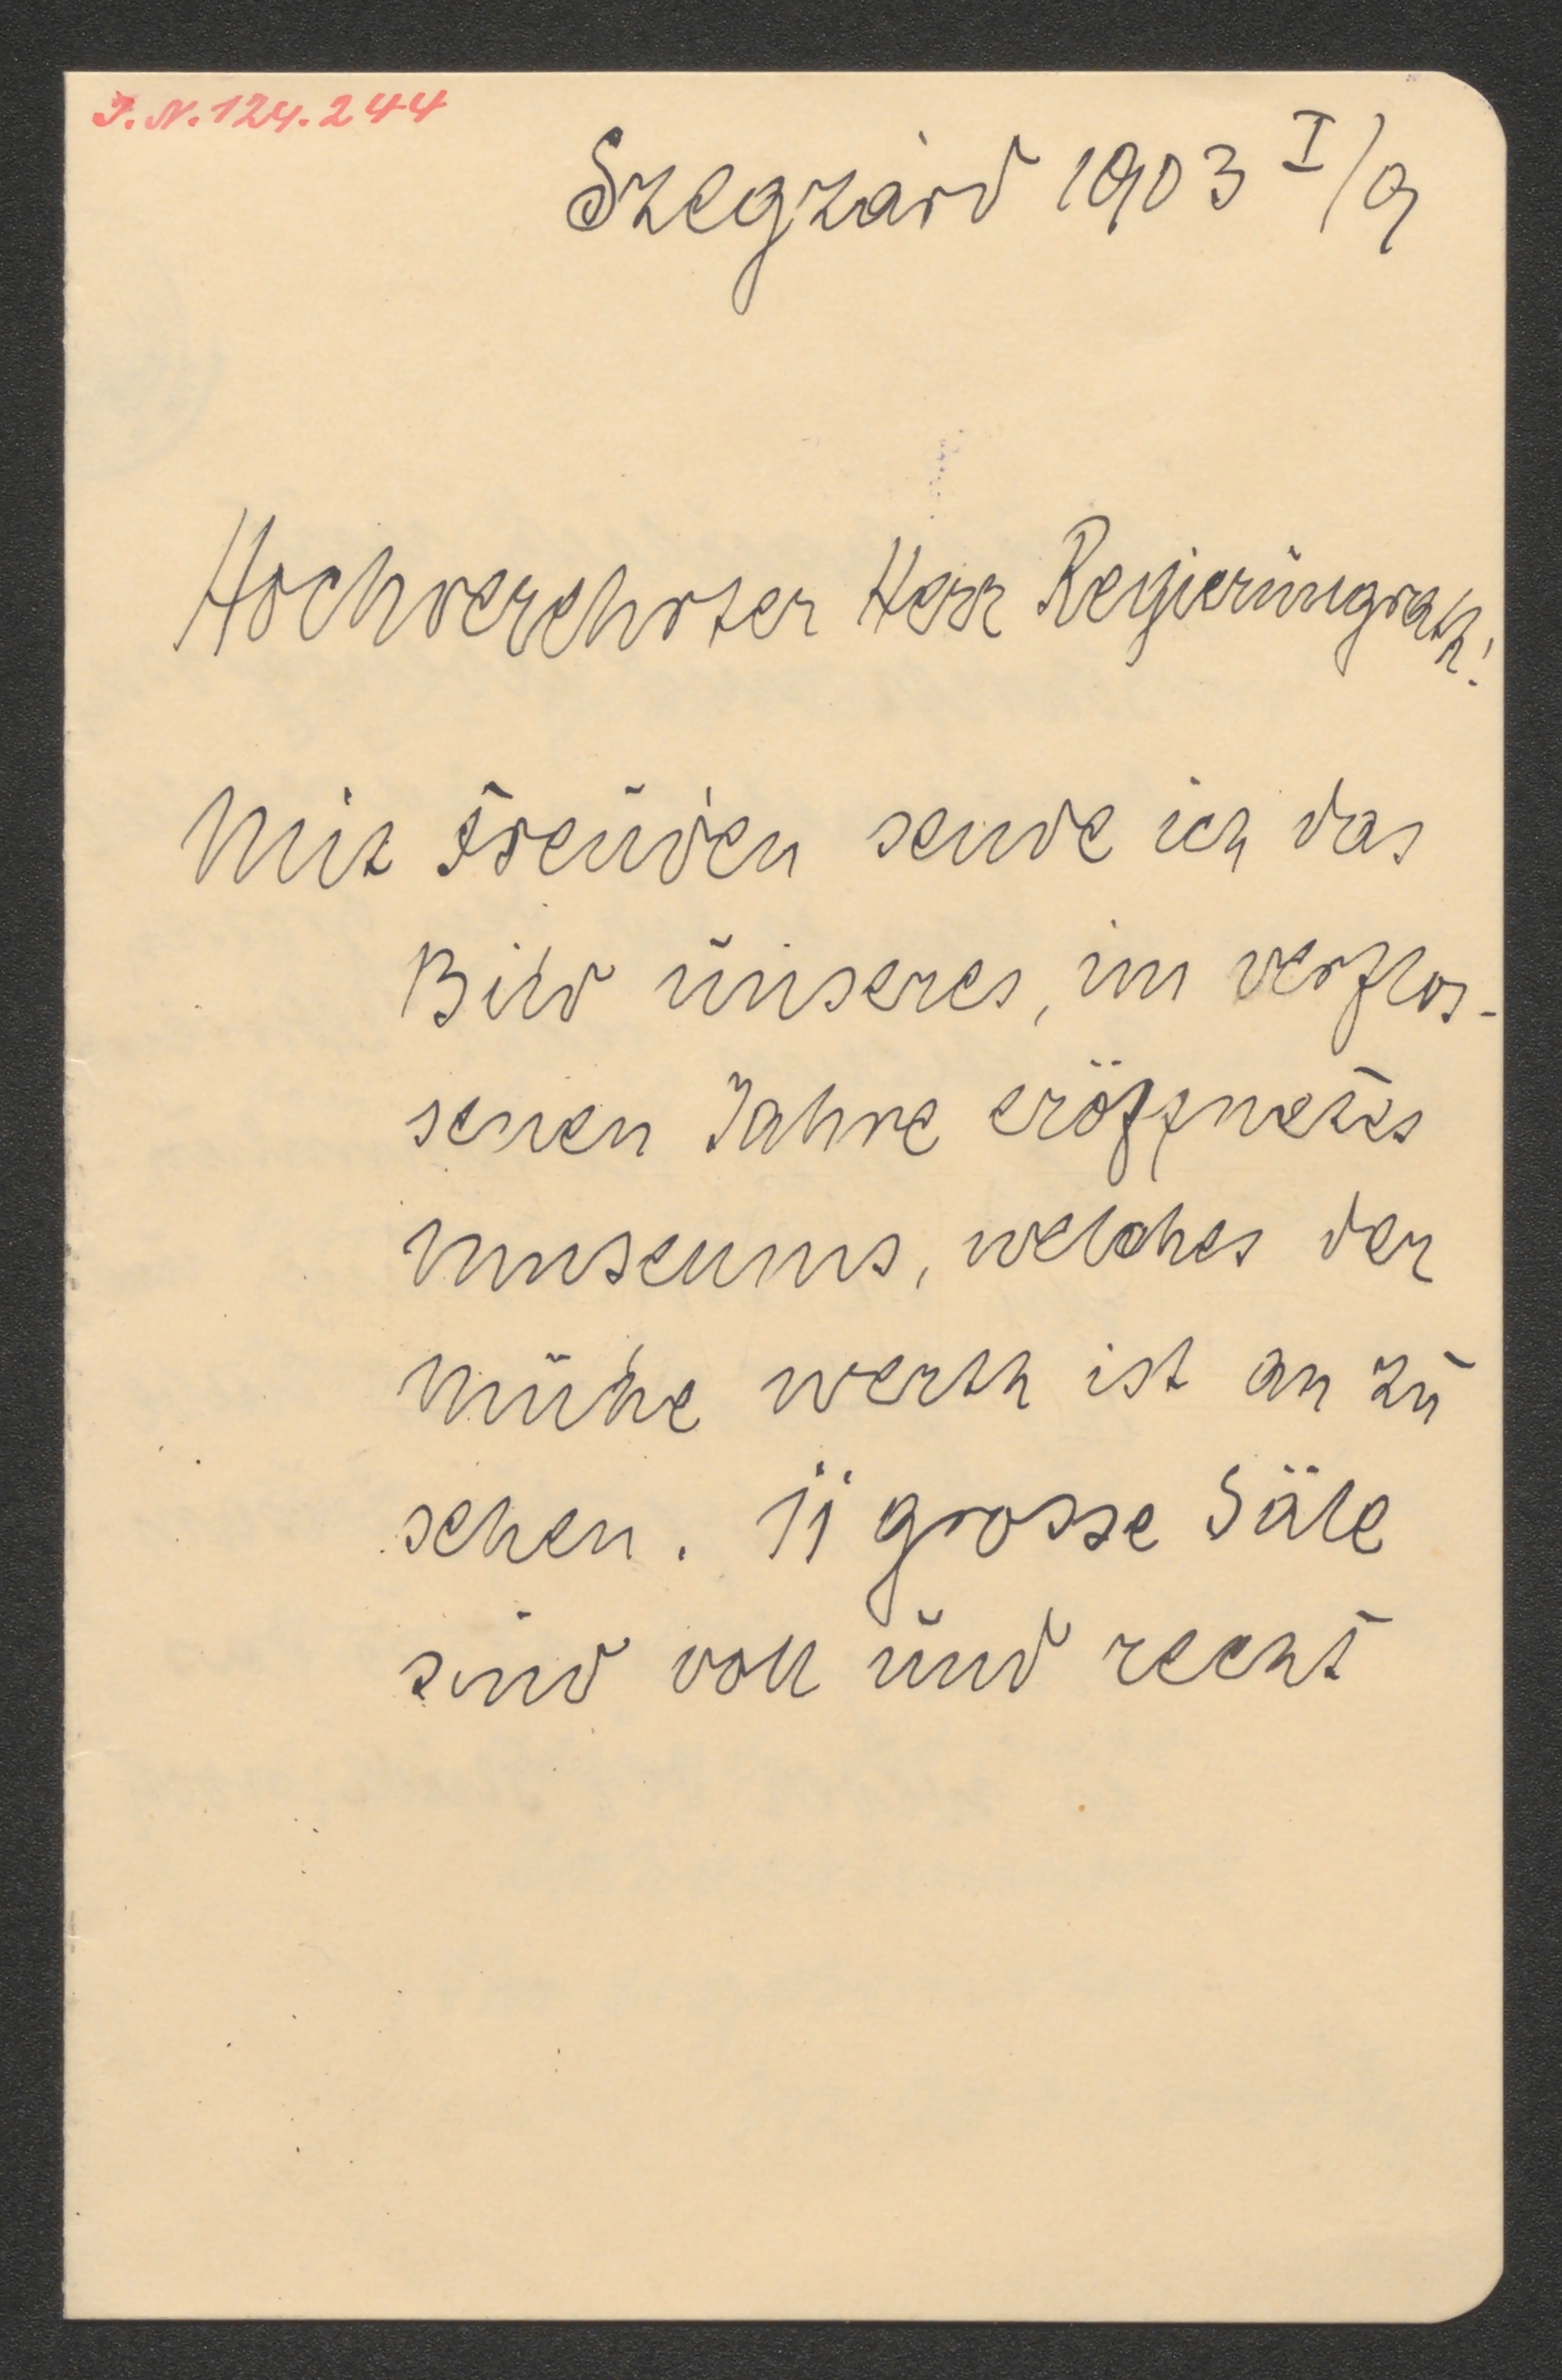 I.N. 124.244
Szegzárd 1903 I/9
Hochverehrter Herr Regierungrath!
Mit Freuden sende ich das
Bild unseres, im verflos-
senen Jahre eröffnetes
Museums, welches der
Mühe werth ist an zu
sehen. 11 grosse Säle
sind voll und recht